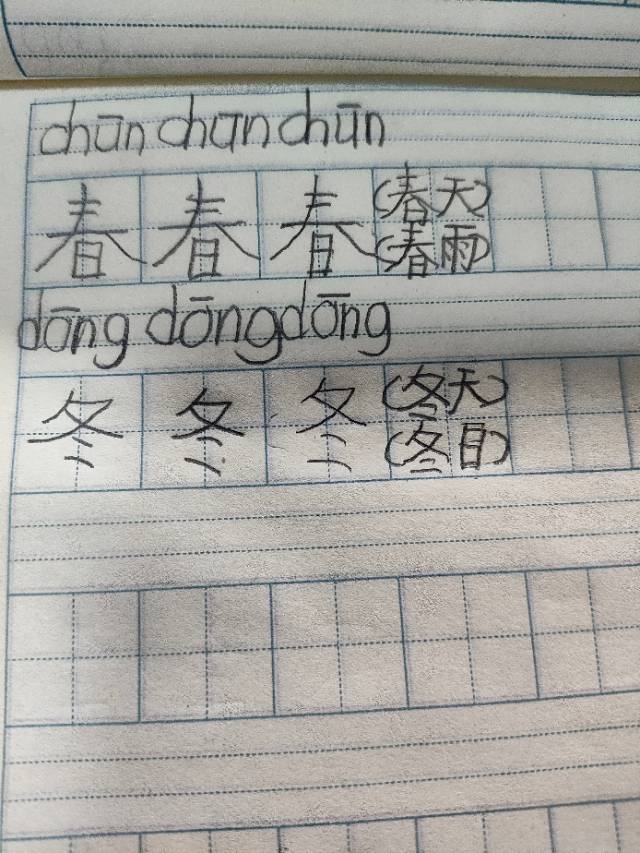 chūn chūn chūn
春 春 春 (春天)
(春雨)
dōng dōng dōng
冬 冬 冬 (冬天)
(冬日)